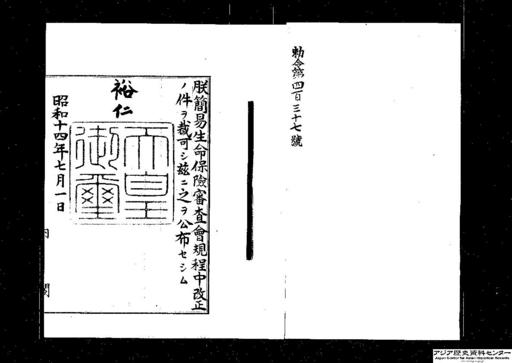 勅令第四百三十七號
朕簡易生命保險審査會規程中改正
ノ件ヲ裁可シ茲ニ之ヲ公布セシム
裕仁
天皇
御璽
昭和十四年七月一日
内閣
アジア歴史資料センター
Japan Center for Asian Historical Records